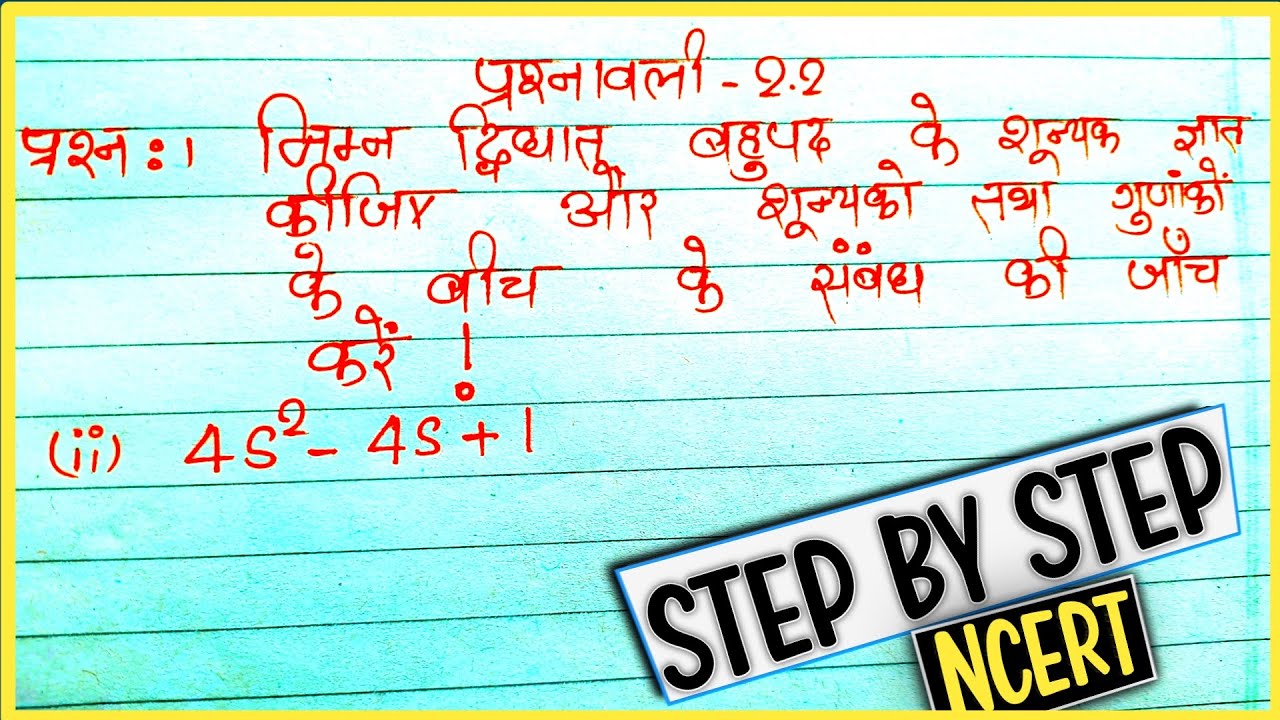 प्रश्नावली - 2.2
प्रश्न : 1 निम्न द्विघात बहुपद के शून्यक ज्ञात
कीजिए और शून्यको तथा गुणांकों
के बीच के संबंध की जाँच
करें !
(ii) 4s² - 4s + 1
STEP BY STEP
NCERT